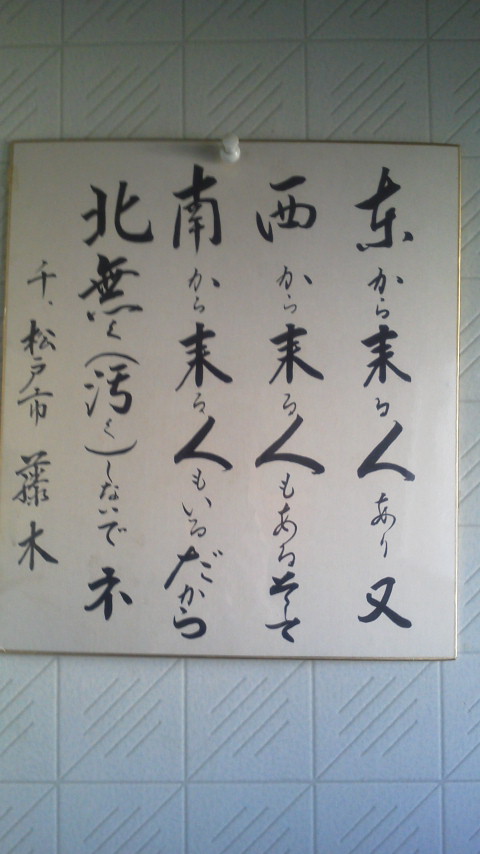 東から来る人あり又
西から来る人もあるそして
南から来る人もいるだから
北無く(汚く)しないでネ
千、松戸市 藤木